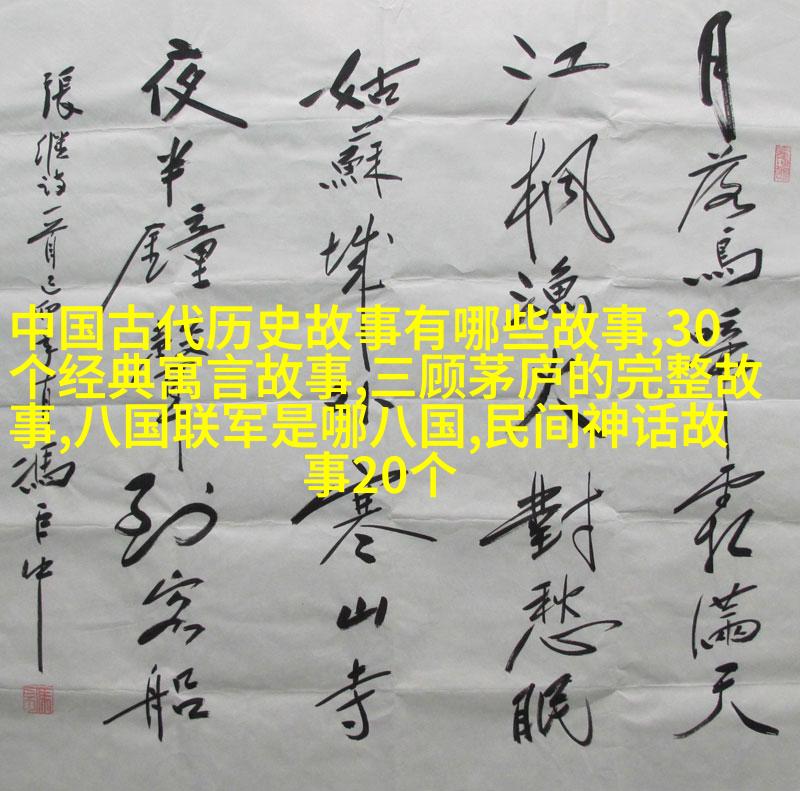 月落烏啼霜滿天
江枫渔火對愁眠
姑蘇城外寒山寺
夜半鐘聲到客船
張继诗一首
中国古代历史故事有哪些故事,30
个经典寓言故事,三顾茅庐的完整故
事,八国联军是哪八国,民间神话故
事20个